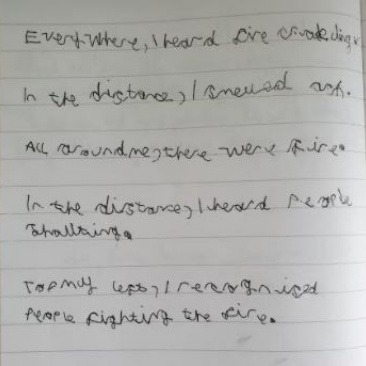 Everywhere, I heard fire crackling.
In the distance, I smelled ash.
All around me, there were fire.
In the distance, I heard people
To my left, I recognised
people fighting the fire.